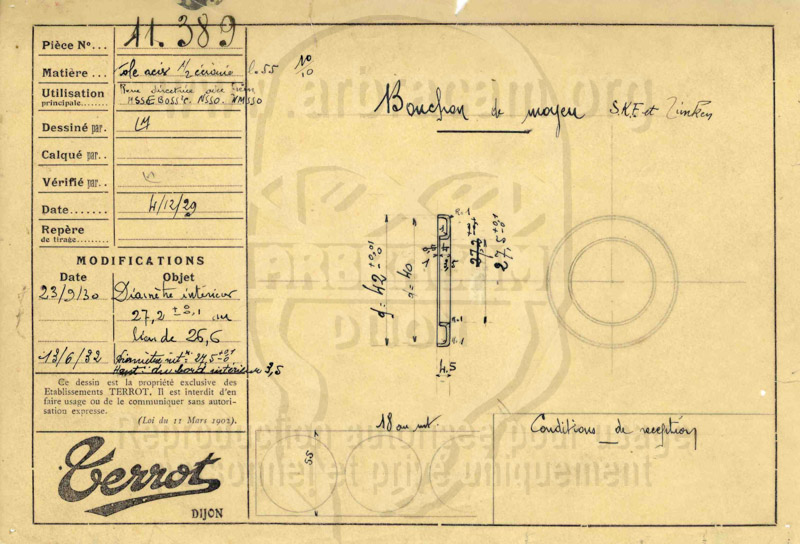 Pièce N°... 11.389
Matière... Tole acis 1/2 l.55 10/10
Utilisation principale... Roue directrice
HSSE NSSO. VMSSO
Dessiné par. LM
Calqué par..
Vérifié par..
Date....... 4/12/29
Repère de tirage...
MODIFICATIONS
Date Objet
23/9/30 Diamètre interieur
27,2 + 0,1 - 0 au
lieu de 26,6
13/6/32 Diamètre int. 27,5 +0,1 -0
Haut. du bord intérieur 3,5
Ce dessin est la propriété exclusive des
Etablissements TERROT. Il est interdit d'en
faire usage ou de le communiquer sans autori-
sation expresse.
(Loi du 11 Mars 1902).
Terrot
DIJON
Bouchon de moyeu S.K.F et Timken
d = 42 +0,01 -0
d = 40
R.1
27,2
27,5 +0,1 -0
R.1
R.1
4,5
18 au mt.
55
Conditions de reception
arbracam.org
ARBRACAM
Dijon
Reproduction autorisée pour usage
personnel et privé uniquement